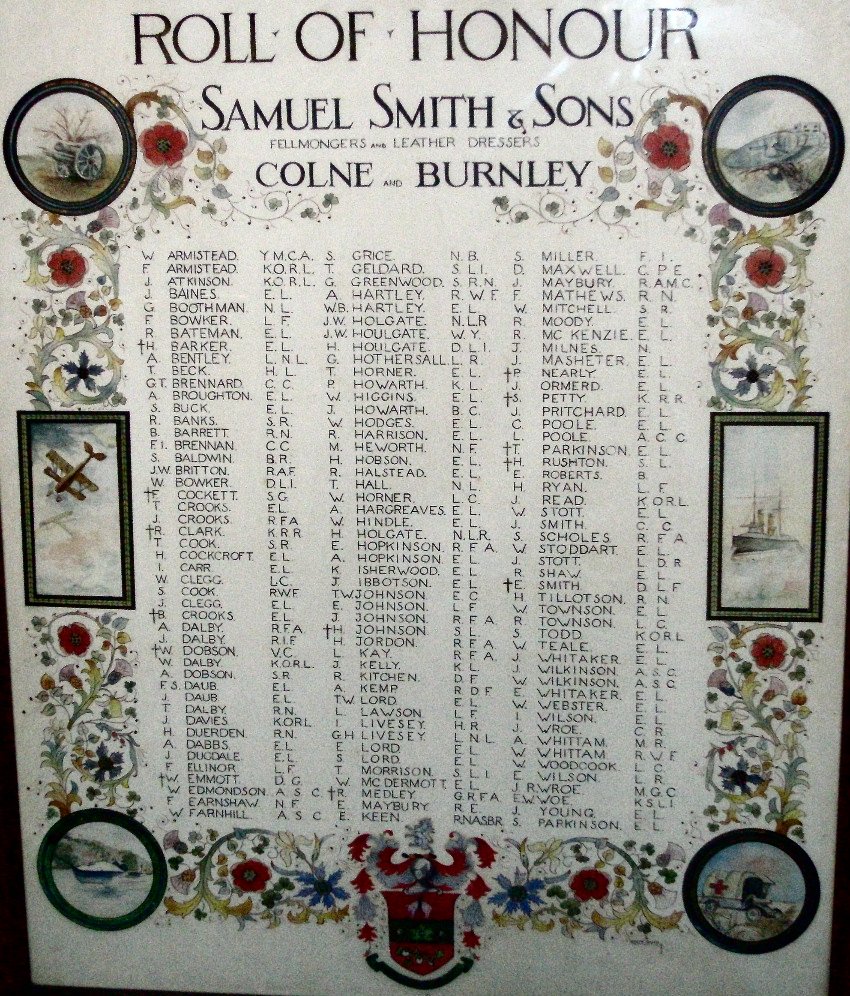 ROLL · OF · HONOUR
SAMUEL SMITH & SONS
FELLMONGERS AND LEATHER DRESSERS
COLNE AND BURNLEY
W ARMISTEAD. Y.M.C.A.
F ARMISTEAD. K.O.R.L.
J. ATKINSON. K.O.R.L.
J. BAINES E.L.
G BOOTHMAN. N.L.
F BOWKER. L.F.
R BATEMAN. E.L.
†H. BARKER. E.L.
A. BENTLEY. L.N.L.
T. BECK. H.L.
G.T. BRENNARD. C.C.
A. BROUGHTON. E.L.
S. BUCK. E.L.
R. BANKS. S.R.
B. BARRETT. R.N.
F.I. BRENNAN. C.C.
S. BALDWIN. B.R.
J.W. BRITTON. R.A.F
W. BOWKER. D.L.I
†E. COCKETT. S.G.
T. CROOKS. E.L.
J. CROOKS. R.F.A
†R. CLARK. K.R.R
T. COOK. S.R.
H. COCKCROFT. E.L.
I. CARR. E.L.
W. CLEGG. L.C.
S. COOK. R.W.F
J. CLEGG. E.L.
†B. CROOKS. E.L.
A. DALBY. R.F.A.
J. DALBY. R.I.F
†W. DOBSON. V.C
W. DALBY. K.O.R.L.
A. DOBSON. S.R
F.S. DAUB. E.L
J. DAUB. E.L
T DALBY. R.N.
J. DAVIES. K.O.R.L
H. DUERDEN. R.N.
A. DABBS. E.L
J. DUGDALE. E.L
F. ELLINOR L.F.
†W. EMMOTT. D.G.
W. EDMONDSON. A.S.C
F EARNSHAW. N.F
W. FARNHILL. A.S.C
S. GRICE. N.B.
T. GELDARD. S.L.I.
G. GREENWOOD. S.R.N.
A. HARTLEY. R.W.F
W.B. HARTLEY. E.L.
J.W. HOLGATE. N.L.R
J.W. HOULGATE. W.Y.
H. HOULGATE. D.L.I.
G. HOTHERSALL. L.R.
T. HORNER. E.L.
P. HOWARTH. K.L.
W. HIGGINS. E.L.
J. HOWARTH. B.C.
W. HODGES. E.L.
R. HARRISON. E.L.
M. HEWORTH. N.F
H. HOBSON. E.L.
R. HALSTEAD. E.L.
T. HALL. N.L.
W. HORNER. L.C.
A. HARGREAVES. E.L.
W. HINDLE. E.L.
H. HOLGATE. N.L.R.
E. HOPKINSON. R.F.A
A. HOPKINSON. E.L.
K. ISHERWOOD. E.L.
J. IBBOTSON. E.L
T.W JOHNSON E.C
E. JOHNSON. L.F
J. JOHNSON. R.F.A
†H. JOHNSON. S.L.
H. JORDON. R.F.A
L. KAY. R.F.A
J. KELLY. K.L
R. KITCHEN. D.F
A. KEMP R.D.F
T.W. LORD. E.L
L. LAWSON. L.F
I LIVESEY. H.R
G.H LIVESEY. L.N.L
E. LORD E.L
S. LORD E.L
T. MORRISON. S.L.I
W. MCDERMOTT. E.L
†R. MEDLEY. G.R.F.A
E. MAYBURY. R.E
E. KEEN. RNASBR
S. MILLER. F.I.
D. MAXWELL. C.P.E
J. MAYBURY. R.A.M.C
F MATHEWS. R.N.
W. MITCHELL. S.R.
R. MOODY. E.L
R. MCKENZIE. E.L.
J. MILNES. N.
J. MASHETER. E.L
†P NEARLY. E.L
J. ORMERD. E.L
†S. PETTY. K.R.R
J. PRITCHARD. E.L
C. POOLE. E.L.
L. POOLE. A.C.C
†T. PARKINSON. E.L
†H. RUSHTON. S.L.
E. ROBERTS. B.
H. RYAN. L.F
J. READ. K.O.R.L.
W STOTT. E.L
J. SMITH. C.C
S. SCHOLES. R.F.A
W STODDART. E.L
J. STOTT. L.D.R
R. SHAW E.L
†E. SMITH. D.L.F
H. TILLOTSON. R.N.
W. TOWNSON. E.L
R. TOWNSON. L.C.
S. TODD. K.O.R.L
W. TEALE. E.L.
J. WHITAKER. E.L
J. WILKINSON. A.S.C.
W. WILKINSON. A.S.C
E. WHITAKER. E.L
W. WEBSTER. E.L.
I. WILSON. E.L
J. WROE. C.R
A. WHITTAM. M.R.
W. WHITTAM. R.W.F.
W. WOODCOOK. L.C
E. WILSON. L.R
J.R WROE M.G.C
E.W. WOE. K.S.L.I
J. YOUNG. E.L
S. PARKINSON. E.L